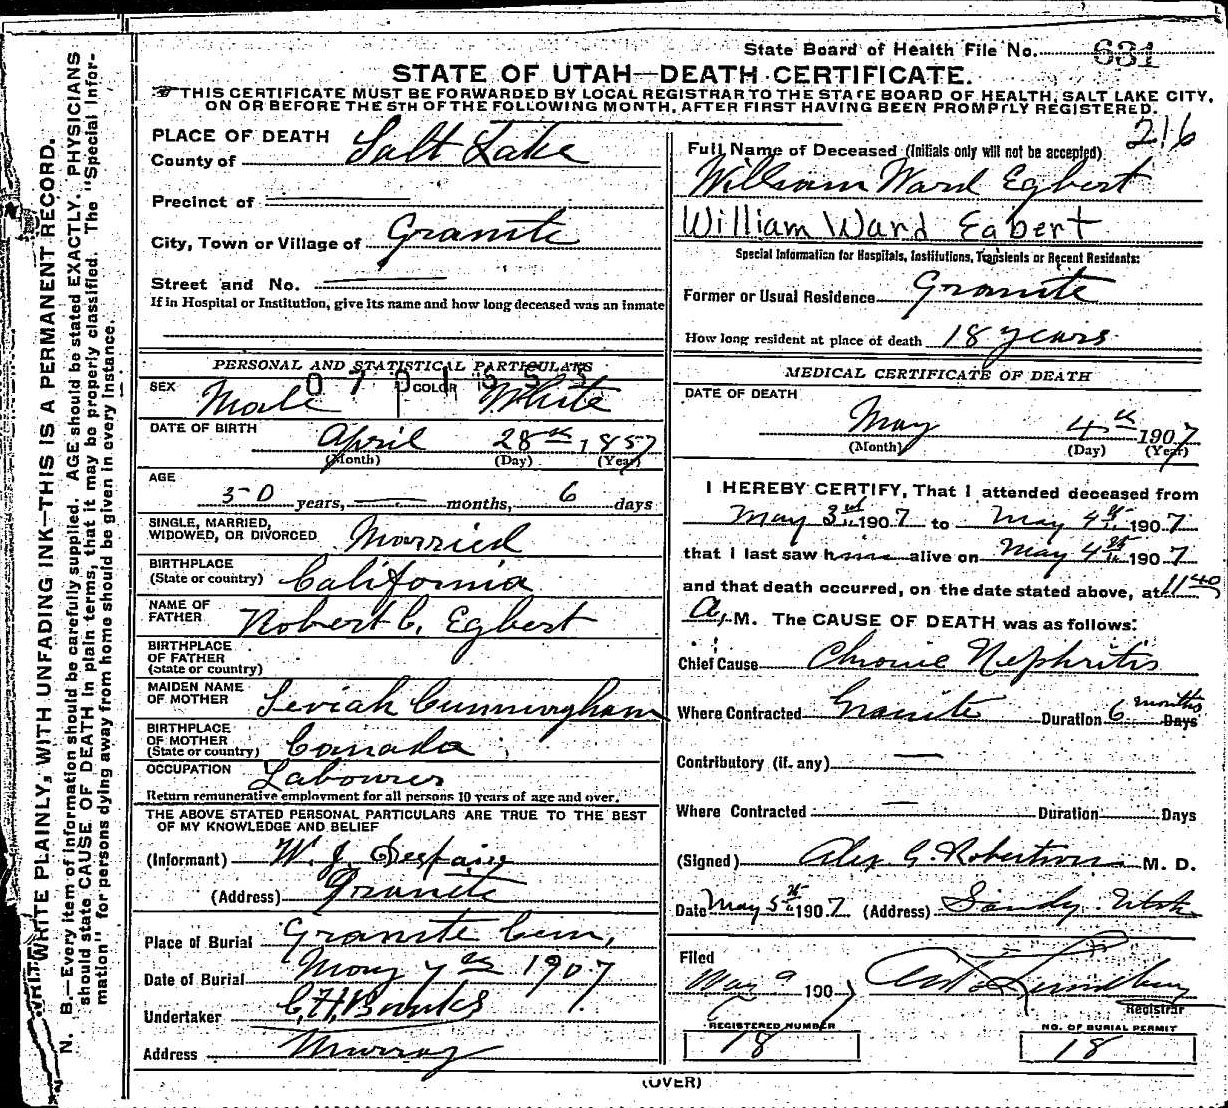 State Board of Health File No. 631
STATE OF UTAH—DEATH CERTIFICATE.
THIS CERTIFICATE MUST BE FORWARDED BY LOCAL REGISTRAR TO THE STATE BOARD OF HEALTH, SALT LAKE CITY,
ON OR BEFORE THE 5TH OF THE FOLLOWING MONTH, AFTER FIRST HAVING BEEN PROMPTLY REGISTERED.
216
PLACE OF DEATH
County of Salt Lake
Precinct of
City, Town or Village of Granite
Street and No.
If in Hospital or Institution, give its name and how long deceased was an inmate
PERSONAL AND STATISTICAL PARTICULARS
SEX Male COLOR White
DATE OF BIRTH April 28th 1857
(Month) (Day) (Year)
AGE
50 years, months, 6 days
SINGLE, MARRIED,
WIDOWED, OR DIVORCED Married
BIRTHPLACE
(State or country) California
NAME OF
FATHER Robert C. Egbert
BIRTHPLACE
OF FATHER
(State or country)
MAIDEN NAME
OF MOTHER Seviah Cunningham
BIRTHPLACE
OF MOTHER
(State or country) Canada
OCCUPATION Labourer
Return remunerative employment for all persons 10 years of age and over.
THE ABOVE STATED PERSONAL PARTICULARS ARE TRUE TO THE BEST
OF MY KNOWLEDGE AND BELIEF
(Informant) W. J.
(Address) Granite
Place of Burial Granite Cem,
Date of Burial May 7th 1907
Undertaker
Address Murray
Full Name of Deceased (Initials only will not be accepted)
William Ward Egbert
William Ward Egbert
Special Information for Hospitals, Institutions, Transients or Recent Residents:
Former or Usual Residence Granite
How long resident at place of death 18 years
MEDICAL CERTIFICATE OF DEATH
DATE OF DEATH
May 4th 1907
(Month) (Day) (Year)
I HEREBY CERTIFY, That I attended deceased from
May 3rd 1907 to May 4th 1907
that I last saw him alive on May 4th 1907
and that death occurred, on the date stated above, at 11 40
A, M. The CAUSE OF DEATH was as follows:
Chief Cause Chronic Nephritis
Where Contracted Granite Duration 6 months Days
Contributory (if any)
Where Contracted Duration Days
(Signed) Alex G. Robertson M. D.
Date May 5th 1907 (Address) Sandy Utah
Filed
May 9 1907
Registrar
REGISTERED NUMBER
18
NO. OF BURIAL PERMIT
18
(OVER)
WRITE PLAINLY, WITH UNFADING INK—THIS IS A PERMANENT RECORD.
N. B.—Every item of information should be carefully supplied. AGE should be stated EXACTLY. PHYSICIANS
should state CAUSE OF DEATH in plain terms, that it may be properly classified. The "Special Infor-
mation" for persons dying away from home should be given in every instance.